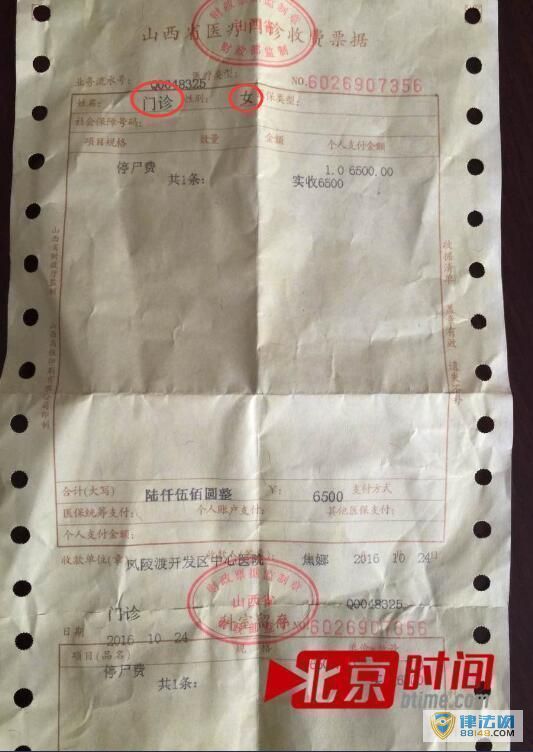 山西省医疗门诊收费票据
财政票据监制章
山西省
财政部监制
业务流水号: Q0048325 医疗类型: NO.6026907356
姓名: 门诊 性别: 女 医保类型:
社会保障号码:
项目规格 数量 金额 个人支付金额
停尸费 1.0 6500.00
共1条: 实收6500
收据清单 盖章有效 遗失不补
合计(大写) 陆仟伍佰圆整 ¥: 6500 支付方式
医保统筹支付: 个人账户支付: 其他医保支付:
个人支付金额:
收款单位(章) 风陵渡开发区中心医院 焦娜 2016 10 24日
财政票据监制章
山西省
财政部监制
门诊 Q0048325
日期 2016 10 24 NO.6026907356
项目(品名) 规格
停尸费
共1条:
北京时间
btime.com
律法网
88148.com